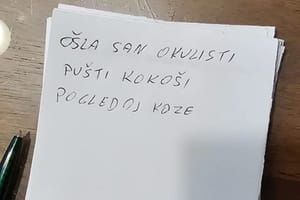 OŠLA SAN OKULISTI
PUŠTI KOKOŠI
POGLEDOJ KOZE